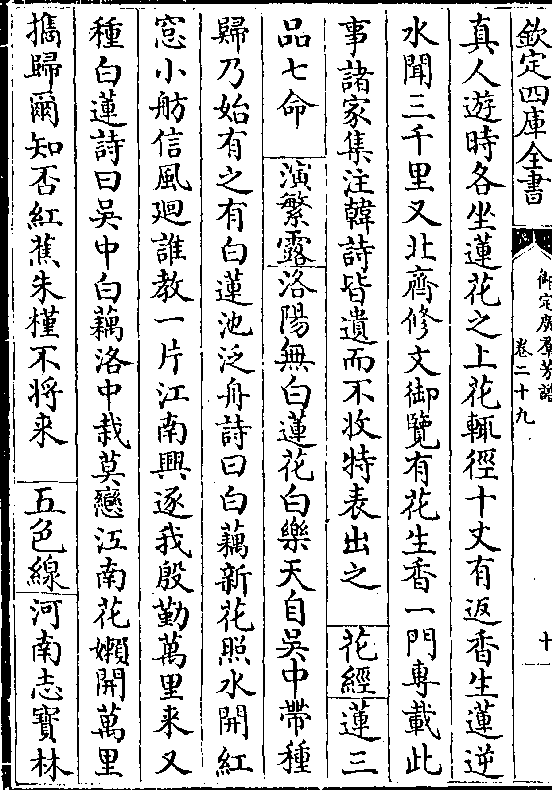 欽定四庫全書
御定廣羣芳譜
卷二十九
十
真人遊時各坐蓮花之上花輒徑十丈有返香生蓮逆
水聞三千里又北齊修文御覽有花生香一門專載此
事諸家集注韓詩皆遺而不收特表出之 花經 蓮三
品七命 演繁露 洛陽無白蓮花白樂天自吳中帶種
歸乃始有之有白蓮池泛舟詩曰白藕新花照水開紅
窓小舫信風廻誰教一片江南興逐我殷勤萬里来又
種白蓮詩曰吳中白藕洛中栽莫戀江南花嬾開萬里
攜歸爾知否紅蕉朱槿不將来 五色線 河南志寶林